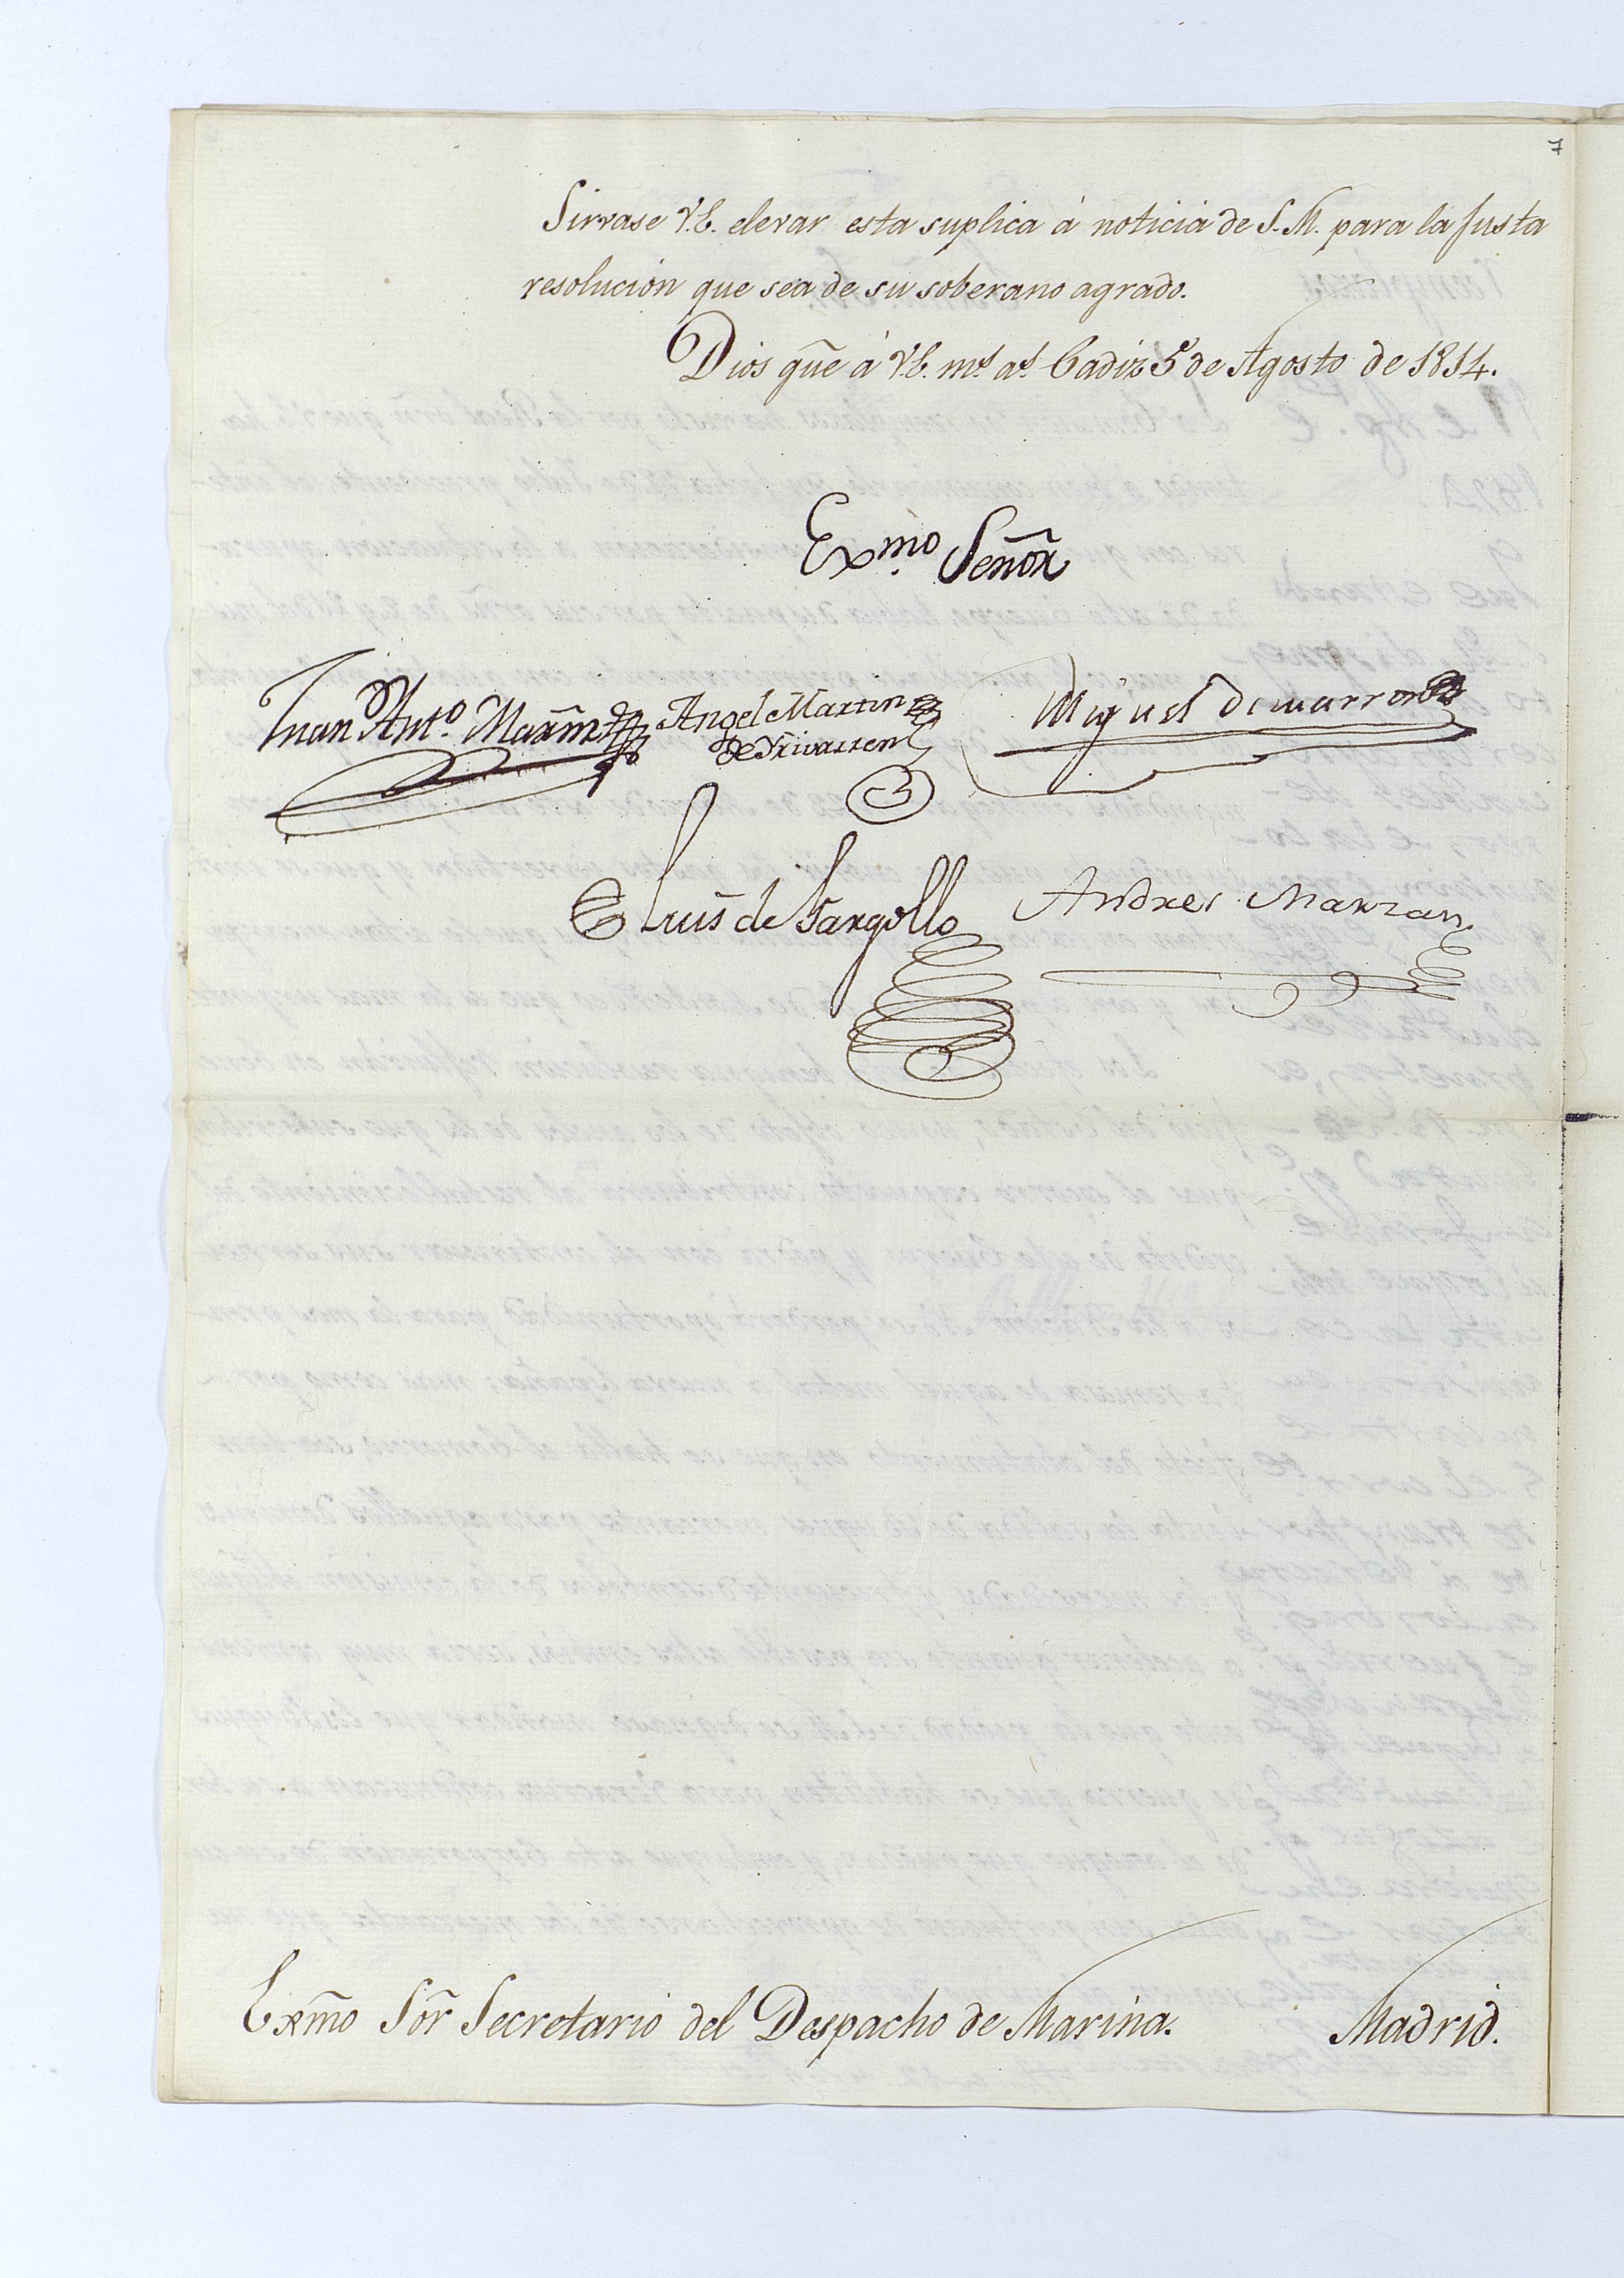 7
Sirvase V.E. elevar esta suplica á noticia de S.M. para la justa
resolucion que sea de su soberano agrado.
Dios gũe á V.E. mˢ. aˢ. Cadiz 5 de Agosto de 1814.
Exmo. Señor
Juan Antº.
Angel Martin
de Yribarren
Miguel de
Luis de Gargollo
Andres Marzan
Exmo Sor Secretario del Despacho de Marina. Madrid.